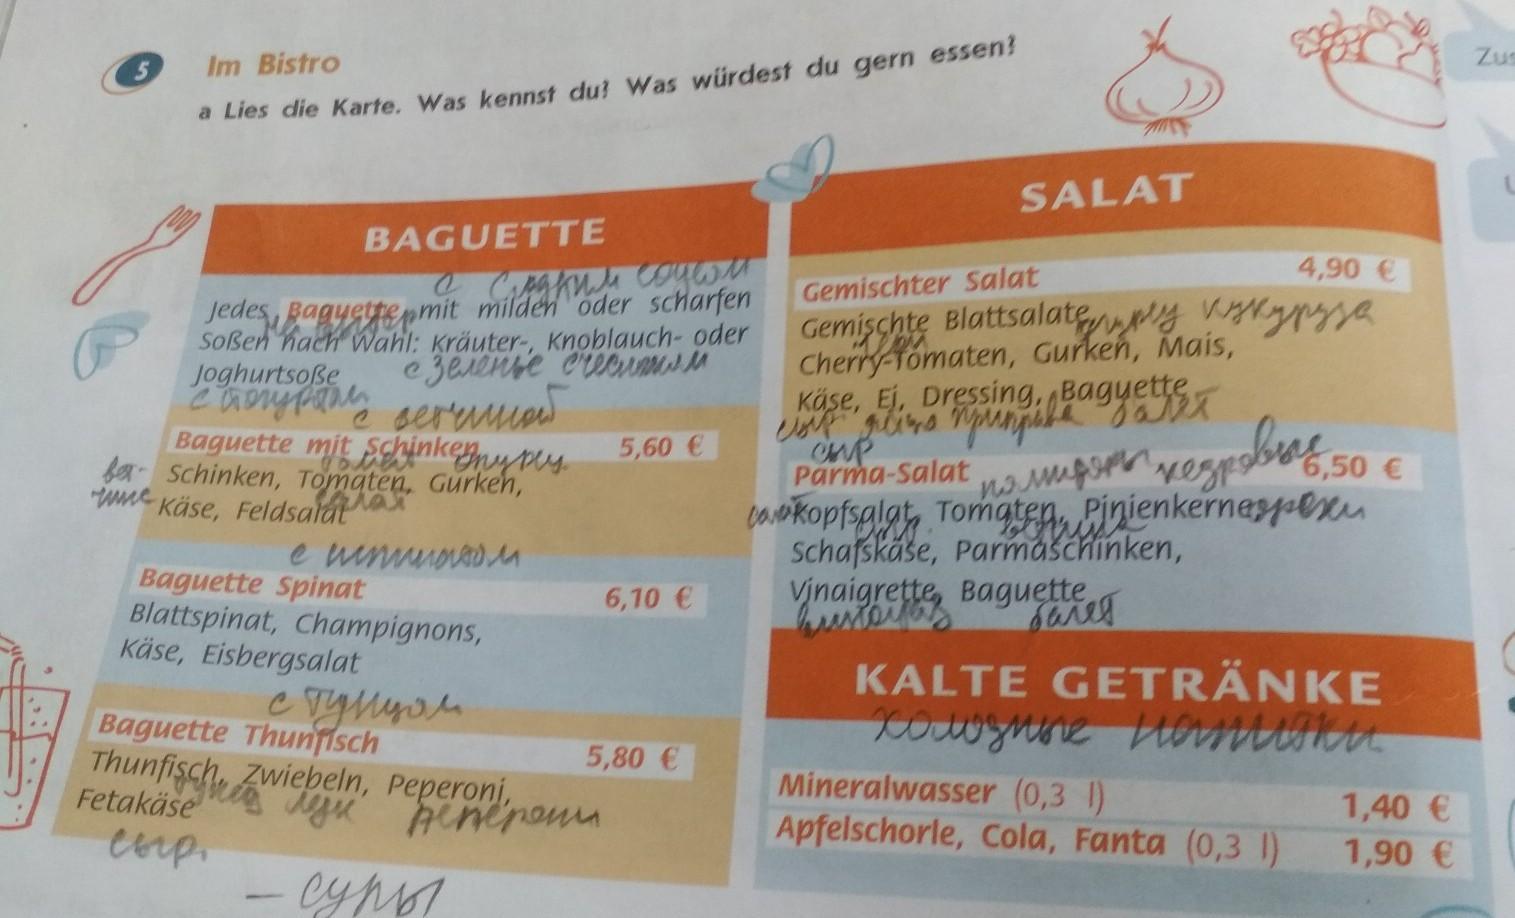 5 Im Bistro
a Lies die Karte. Was kennst du? Was würdest du gern essen?
Zus
BAGUETTE
с сладким соусом
Jedes Baguette mit milden oder scharfen
Soßen nach Wahl: Kräuter-, Knoblauch- oder
Joghurtsoße
с
с ветчиной
Baguette mit Schinken 5,60 €
салат огурец
Schinken, Tomaten, Gurken,
Käse, Feldsalat
салат
с шпинатом
Baguette Spinat 6,10 €
Blattspinat, Champignons,
Käse, Eisbergsalat
с тунцом
Baguette Thunfisch 5,80 €
Thunfisch, Zwiebeln, Peperoni,
Fetakäse тунец лук пеперони
сыр.
– супы
SALAT
Gemischter Salat 4,90 €
Gemischte Blattsalate, кукуруза
Cherry-Tomaten, Gurken, Mais,
Käse, Ei, Dressing, Baguette
сыр яйцо приправа багет
сыр
Parma-Salat 6,50 €
помидоры кедровые
Kopfsalat, Tomaten, Pinienkerne орехи
Schafskäse, Parmaschinken,
Vinaigrette, Baguette
багет
KALTE GETRÄNKE
холодные напитки
Mineralwasser (0,3 l) 1,40 €
Apfelschorle, Cola, Fanta (0,3 l) 1,90 €